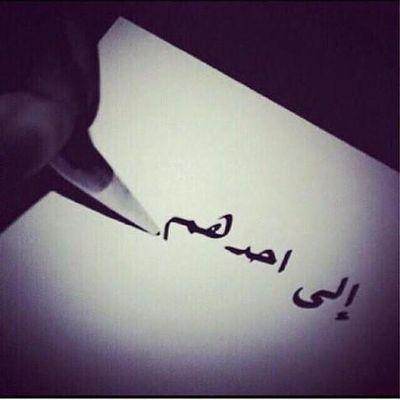 إلى احدهم